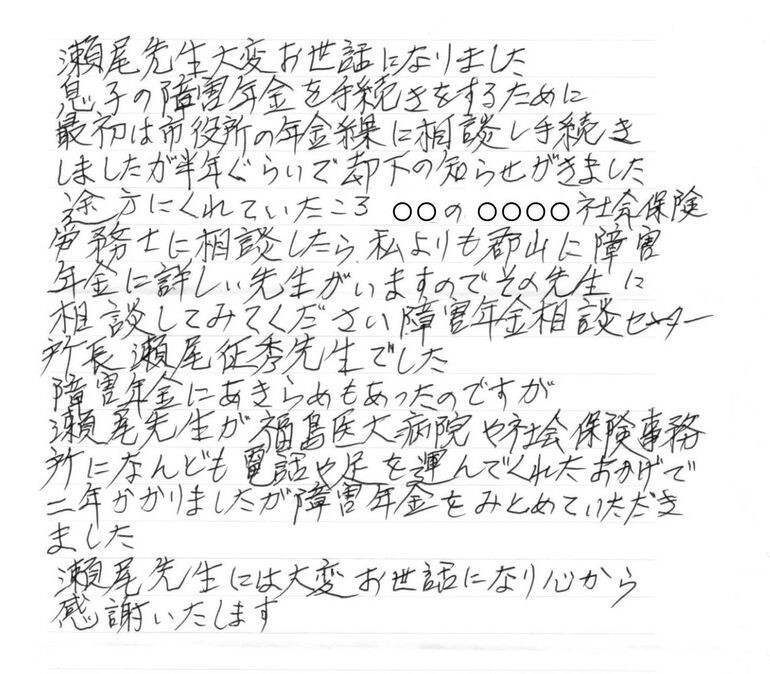 瀬尾先生大変お世話になりました
息子の障害年金を手続きをするために
最初は市役所の年金課に相談し手続き
しましたが半年ぐらいで却下の知らせがきました
途方にくれていたころ ○○の ○○○○社会保険
労務士に相談したら 私よりも郡山に障害
年金に詳しい先生がいますのでその先生に
相談してみてください障害年金相談センター
所長瀬尾征秀先生でした
障害年金にあきらめもあったのですが
瀬尾先生が福島医大病院や社会保険事務
所になんども電話や足を運んでくれたおかげで
二年かかりましたが障害年金をみとめていただき
ました
瀬尾先生には大変お世話になり心から
感謝いたします